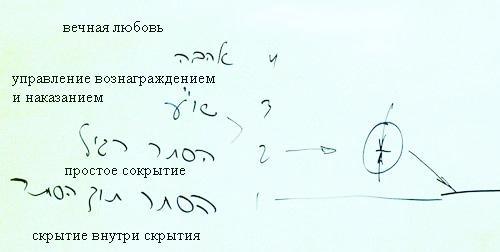 вечная любовь
אהבה 4
управление вознаграждением
и наказанием
שו"ע 3
הסתר רגיל 2
простое сокрытие
הסתר תוך הסתר 1
скрытие внутри скрытия